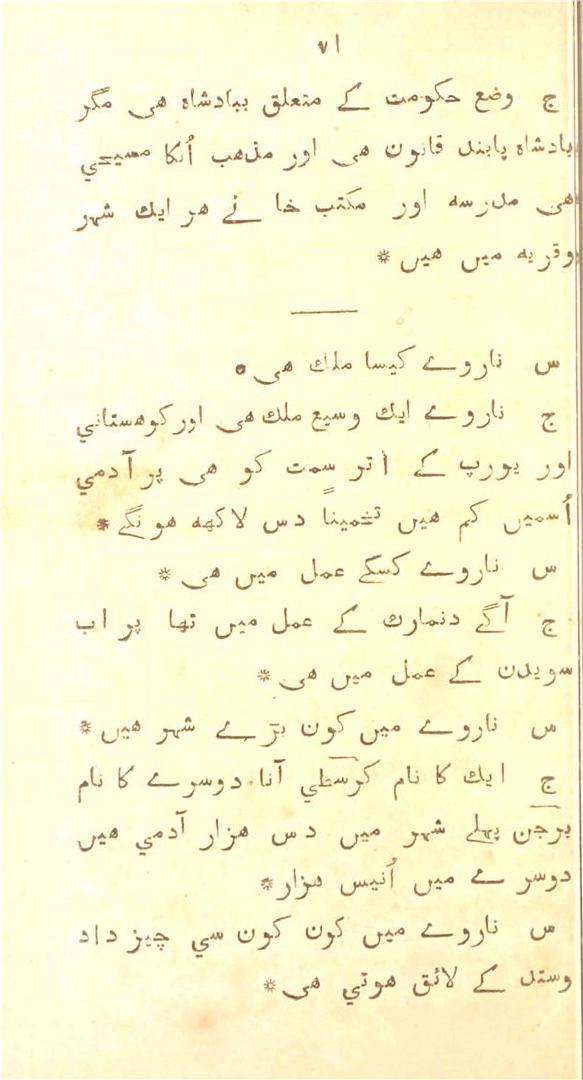 ۷۱
ج وضع حکومت کے متعلق ببادشاہ هی مگر
بادشاہ پابند قانون هی اور مذهب اُنکا مسیحي
هی مدرسہ اور مکتب خانے هر ایك شہر
وقریہ میں هیں *
س ناروے کیسا ملك هی *
ج ناروے ایك وسیع ملك هی اور کوهستاني
اور یورپ کے اُتر سمت کو هی پر آدمي
اُسمیں کم هیں تخمیناً دس لاکهہ هونگے *
س ناروے کسکے عمل میں هی *
ج آگے دنمارك کے عمل میں تها پر اب
سویدن کے عمل میں هی *
س ناروے میں کون بڑے شہر هیں *
ج ایك کا نام کرسطي آنا دوسرے کا نام
برجن پہلے شہر میں دس هزار آدمي هیں
دوسرے میں اُنیس هزار *
س ناروے میں کون کون سي چیز داد
وستد کے لائق هوتي هی *